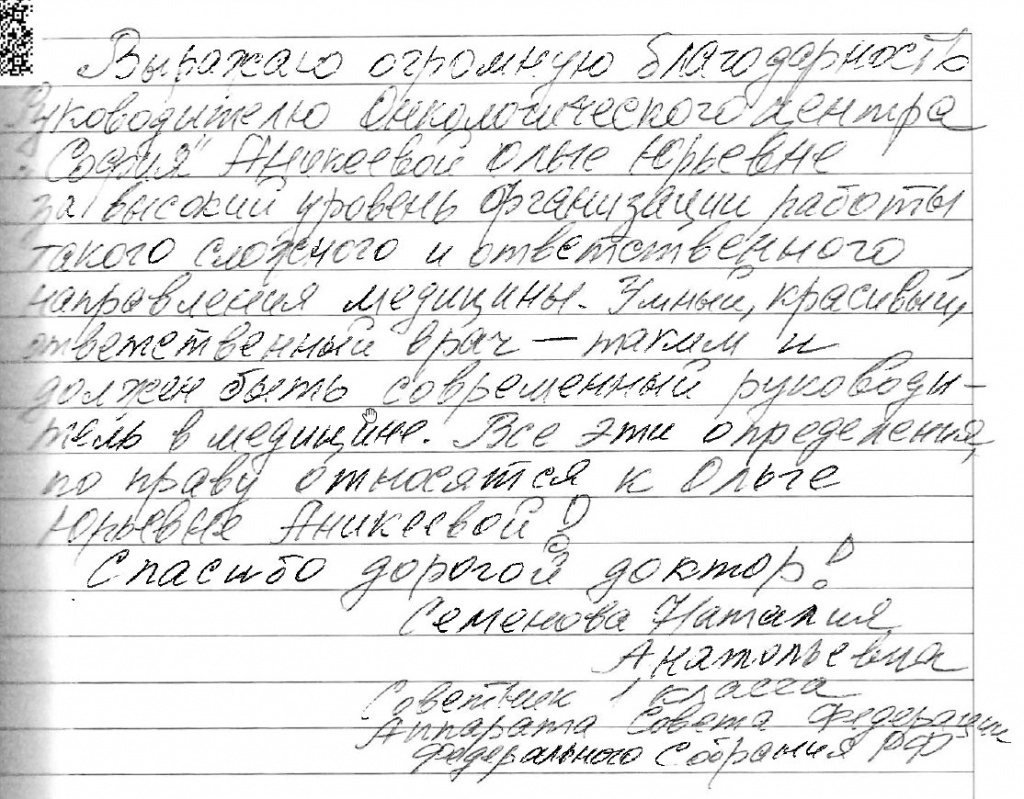 Выражаю огромную благодарность
Руководителю Онкологического центра
"София" Аникеевой Ольге Юрьевне
за высокий уровень организации работы
такого сложного и ответственного
направления медицины. Умный, красивый,
ответственный врач – таким и
должен быть современный руководи-
тель в медицине. Все эти определения,
по праву относятся к Ольге
Юрьевне Аникеевой!
Спасибо дорогой доктор!
Семенова Наталия
Анатольевна
Советник 1 класса
Аппарата Совета Федерации
Федерального Собрания РФ